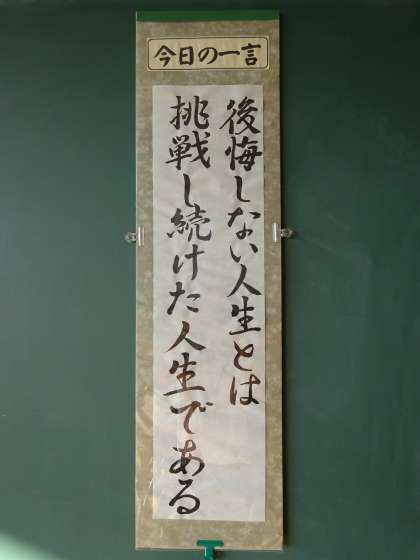 今日の一言
後悔しない人生とは
挑戦し続けた人生である